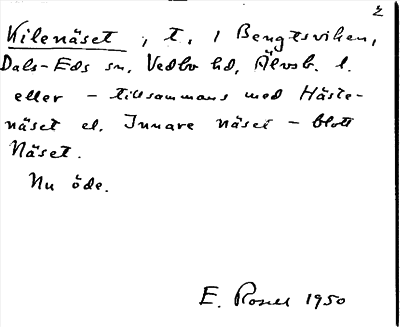 2
Kilenäset, t. i Bengtsviken,
Dals-Eds sn, Vedbo hd, Älvsb. l.
eller – tillsammans med Häste-
näset el. Innare näset – blott
Näset.
Nu öde.
E. Rosell 1950